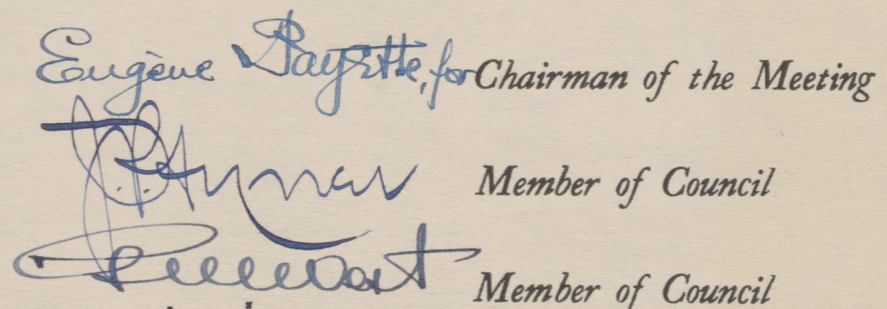 Eugène Payette, for Chairman of the Meeting
Member of Council
Member of Council